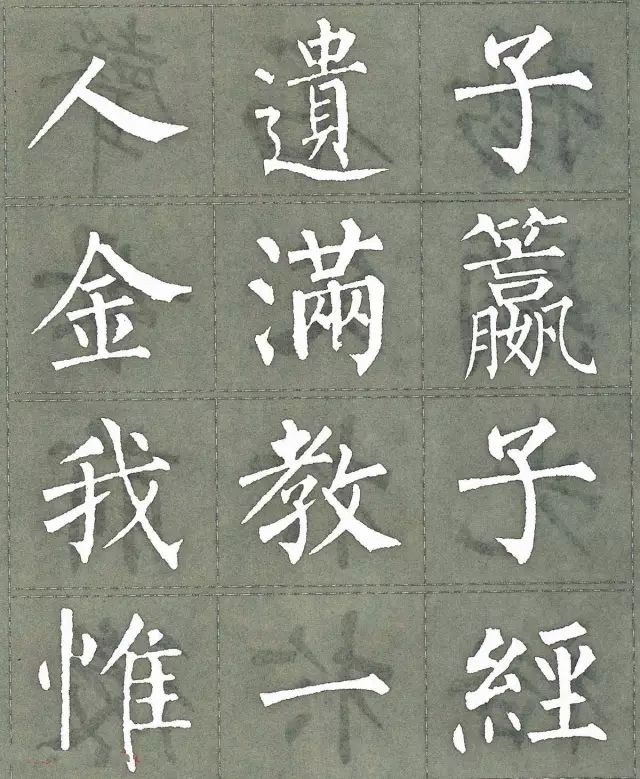 人遺子
金滿籝
我教子
惟一經